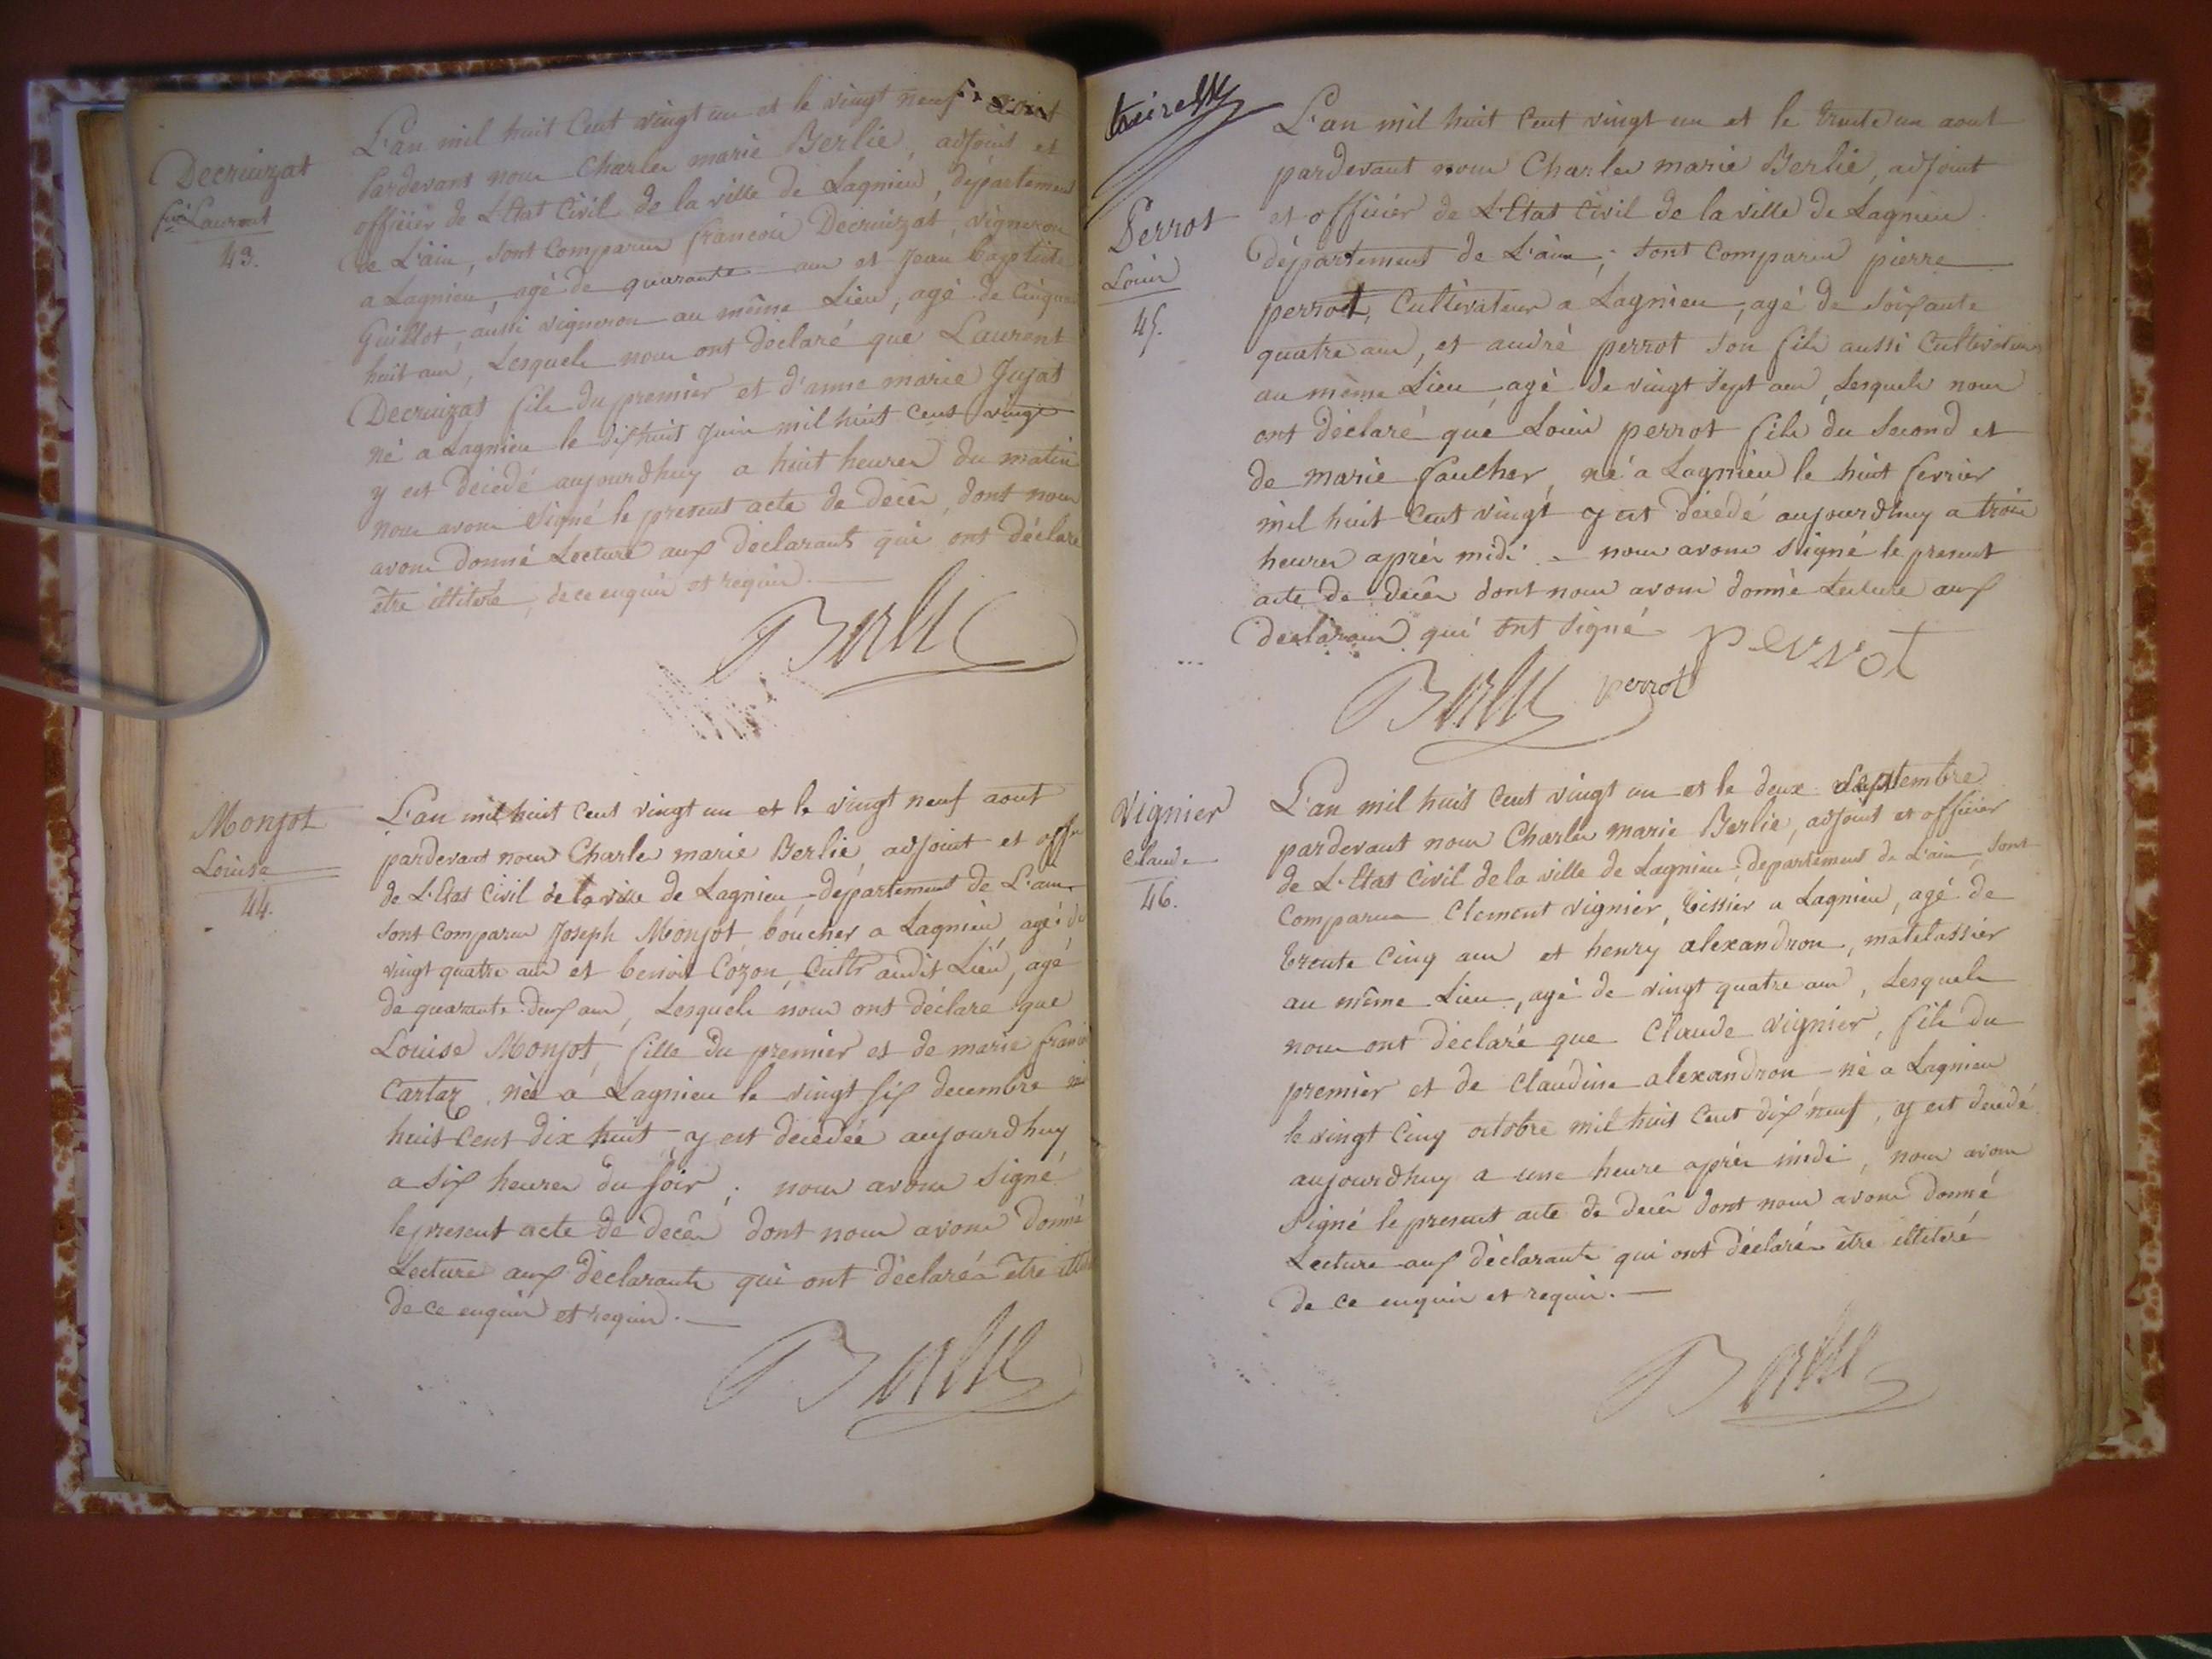 L'an mil huit Cent vingt un et le vingt neuf aout
Pardevant nous Charles marie Berlié, adjoint et
officier de L'Etat Civil de la ville de Lagnieu, département
de L'ain, sont Comparus francois Decruizat, vigneron
a Lagnieu, agé de quarante ans et Jean baptiste
Guillot, aussi vigneron au même Lieu, agé de Cinquante
huit ans, Lesquels nous ont déclaré que Laurent
Decruizat fils du premier et d'anne marie Jujat
né a Lagnieu le dix huit Juin mil huit cent vingt
y est décédé aujourdhuy a huit heures du matin
nous avons signé le present acte de décès, dont nous
avons donné Lecture aux déclarants qui ont déclaré
être illiteré, de ce enquis et requis.
Decruizat
Laurent
43.
Berlié
Monjot
Louise
44.
L'an mil huit Cent vingt un et le vingt neuf aout
pardevant nous Charles marie Berlié, adjoint et offr
de L'Etat Civil de la ville de Lagnieu, département de L'ain
sont Comparus Joseph Monjot, boucher a Lagnieu agé de
vingt quatre ans et benoit Cozon, Cultr audit Lieu, agé
de quarante deux ans, Lesquels nous ont déclaré que
Louise Monjot, fille du premier et de marie
Cartaz, née a Lagnieu le vingt six decembre
huit Cent dix huit, y est décédée aujourdhuy
a six heures du soir; nous avons signé
le present acte de décès dont nous avons donné
Lecture aux déclarants qui ont déclaré être
de ce enquis et requis.
Berlié
Perrot
Louis
45.
L'an mil huit Cent vingt un et le trente un aout
pardevant nous Charles marie Berlié, adjoint
et officier de L'Etat Civil de la ville de Lagnieu
département de L'ain; sont Comparus pierre
perrot, Cultivateur a Lagnieu, agé de soixante
quatre ans, et andré perrot son fils aussi Cultivateur
au même Lieu, agé de vingt sept ans, Lesquels nous
ont déclaré que Louis perrot fils du second et
de marie faucher, né a Lagnieu le huit fevrier
mil huit Cent vingt y est décédé aujourdhuy a trois
heures après midi. nous avons signé le present
acte de décès dont nous avons donné Lecture aux
declarans qui ont signé
perrot
Berlié perrot
Vignier
Claude
46.
L'an mil huit Cent vingt un et le deux septembre
pardevant nous Charles marie Berlié, adjoint et officier
de L'Etat Civil de la ville de Lagnieu département de L'ain, sont
Comparus Clement vignier, tissier a Lagnieu, agé de
trente Cinq ans et henry alexandron, matelassier
au même Lieu, agé de vingt quatre ans, Lesquels
nous ont déclaré que Claude vignier, fils du
premier et de Claudine alexandron né a Lagnieu
le vingt Cinq octobre mil huit Cent dix neuf, y est décédé
aujourdhuy a une heure après midi, nous avons
signé le present acte de décès dont nous avons donné
Lecture aux déclarants qui ont déclaré être illiteré
de ce enquis et requis.
Berlié